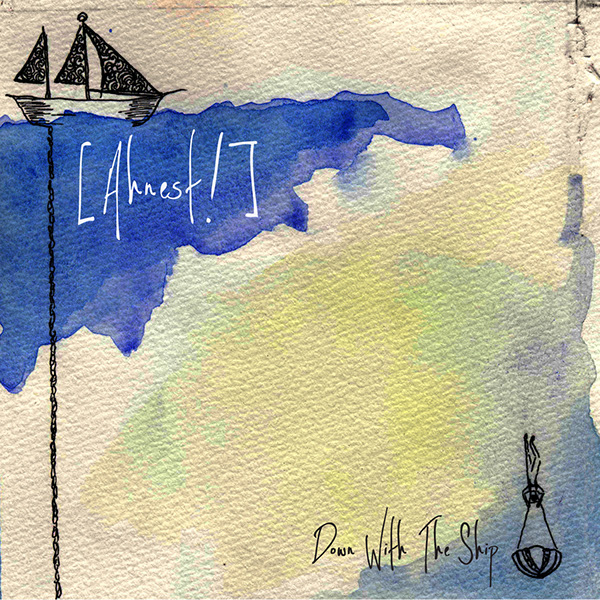 [Ahnest!]
Down With The Ship